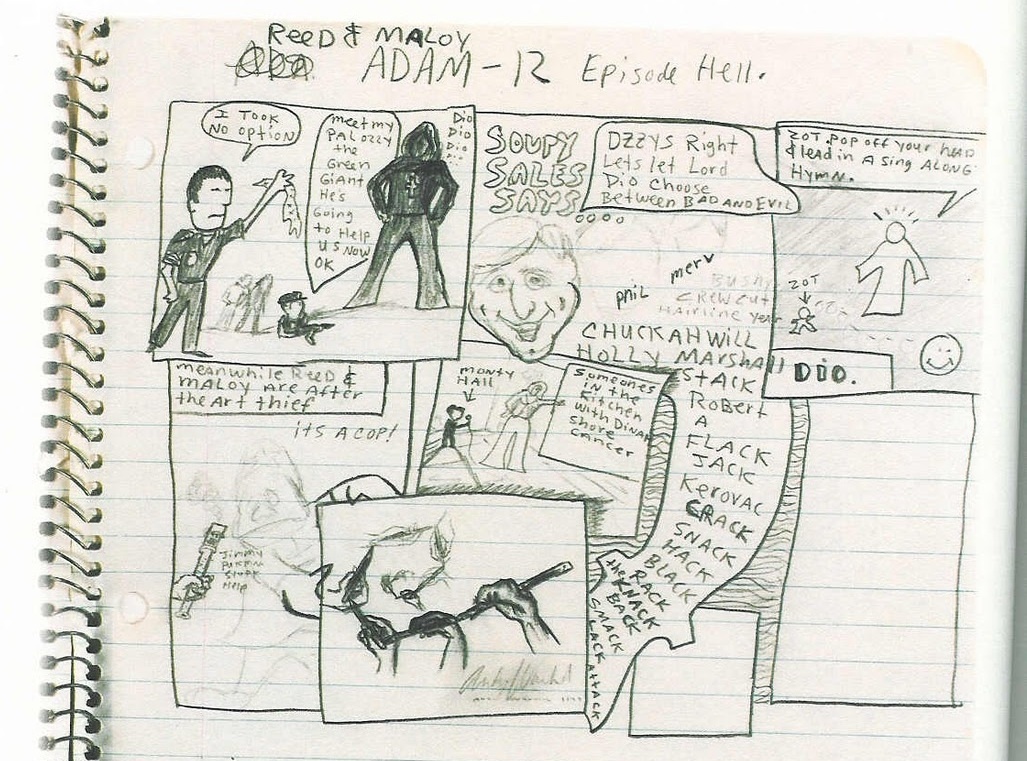 ReeD & MALOY
ADAM-12 Episode Hell.
I TOOK
NO OPTION
meet my
PAL OZZY
the
Green
GIANT
He's
Going
to Help
US NOW
OK
Dio
Dio
Dio
SOUPY
SALES
SAYS
OZZYS Right
Lets let Lord
Dio Choose
Between BAD AND EVIL
ZOT. POP OFF your HEAD
& lead in A Sing ALONG
Hymn.
merv
phil
BUSHY
CREW CUT
HAIRLINE YEAR
ZOT
CHUCKAHWILL
HOLLY MARSHALL
STACK
RoBert
A
FLACK
JACK
Kerovac
CRACK
SNACK
HACK
BLACK
RACK
the KNACK
BACK
SMACK
LACK
ATTACK
DIO.
meanwhile ReeD &
MALOY Are AFTER
the Art thief
itS A COP!
MONTY
HALL
Someones
in the
Kitchen
with DINAH
Shore
Cancer
Jimmy
Help